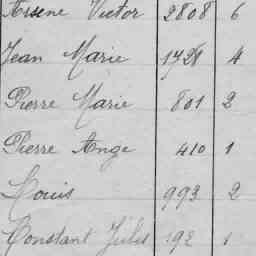 Arsène Victor 2808 6
Jean Marie 1728 4
Pierre Marie 801 2
Pierre Ange 410 1
Louis 993 2
Constant Jules 192 1